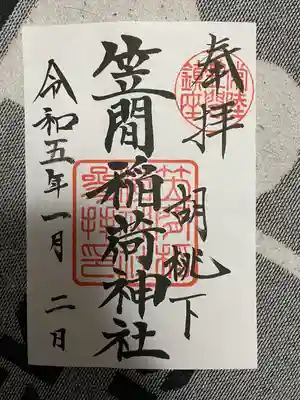 奉拝
胡桃下
笠間稲荷神社
令和五年一月二日